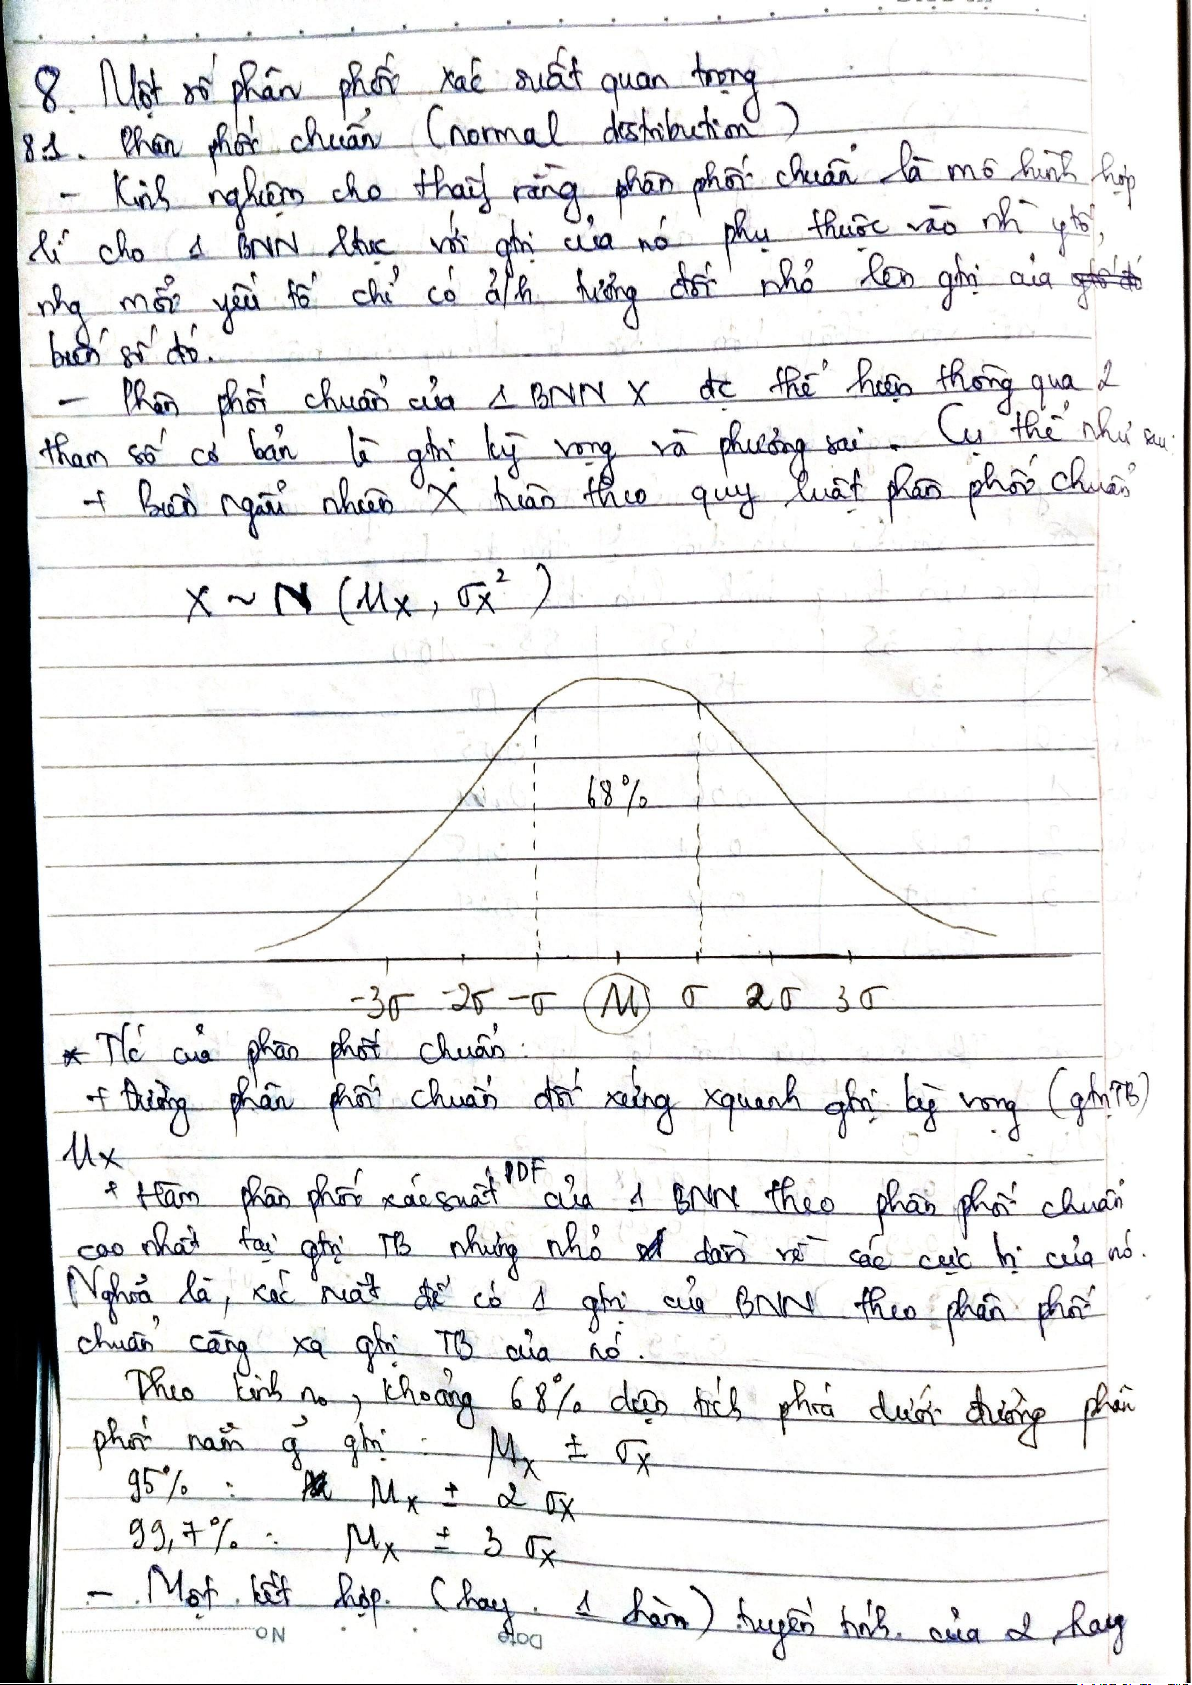 8. Một số phân phối xác suất quan trọng
8.1. Phân phối chuẩn (normal distribution)
- Kinh nghiệm cho thấy rằng phân phối chuẩn là mô hình hợp
lí cho 1 BNN ltục với gtrị của nó phụ thuộc vào nh` ytố,
nhg mỗi yếu tố chỉ có ả/h tương đối nhỏ lên gtrị của
biến số đó.
- Phân phối chuẩn của 1 BNN X đc thể hiện thông qua 2
tham số cơ bản là gtrị kỳ vọng và phương sai. Cụ thể như sau:
+ Biến ngẫu nhiên X tuân theo quy luật phân phối chuẩn
X ~ N (μx, σx²)
68%
-3σ -2σ -σ μ σ 2σ 3σ
* T/c của phân phối chuẩn:
+ Đường phân phối chuẩn đối xứng xquanh gtrị kỳ vọng (gtrị TB)
μx
+ Hàm phân phối xác suất PDF của 1 BNN theo phân phối chuẩn
cao nhất tại gtrị TB nhưng nhỏ dần về các cực trị của nó.
Nghĩa là, xác suất để có 1 gtrị của BNN theo phân phối
chuẩn càng xa gtrị TB của nó.
Theo kinh no, khoảng 68% diện tích phía dưới đường phân
phối nằm gtrị: μx ± σx
95% : μx ± 2 σx
99,7% : μx ± 3 σx
- Một kết hợp (hay 1 hàm) tuyến tính của 2, hay
No
Date